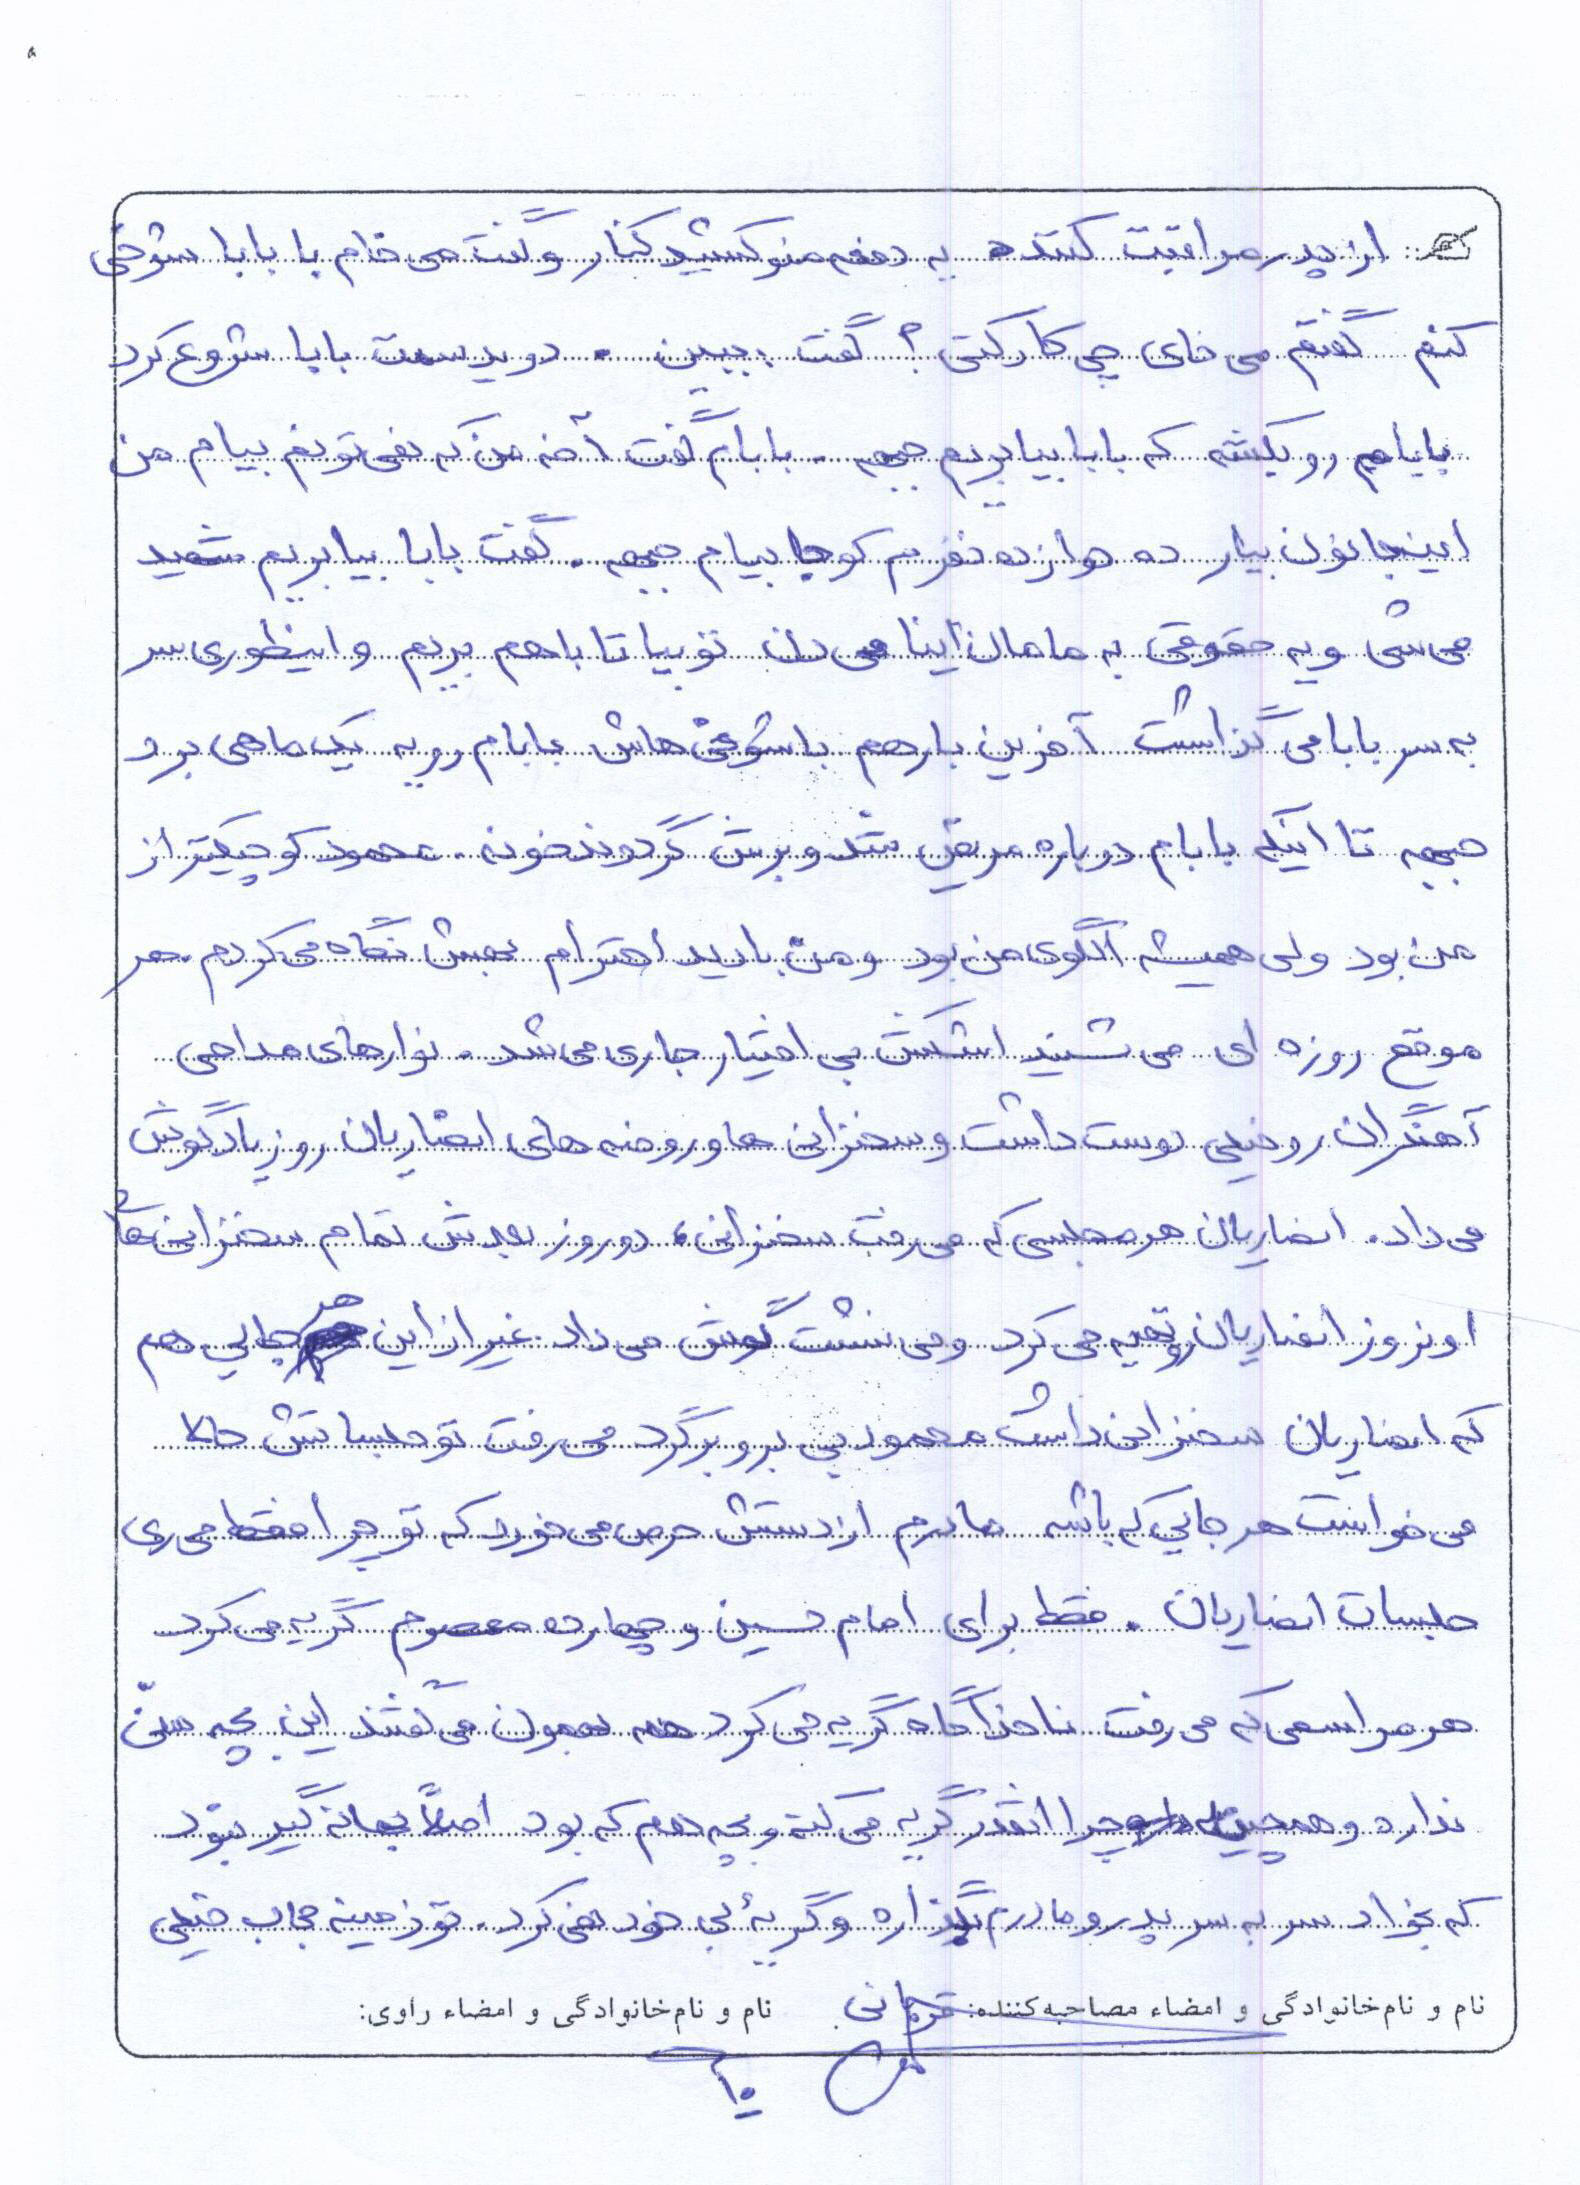 از پدر مراقبت کننده یه دفعه منو کشید کنار و گفت می خام با بابا شوخی
کنم گفتم می خای چی کار کنی؟ گفت ببین. دوید سمت بابا شروع کرد
بابام رو بکشه که بابا بیا بریم جبهه. بابام گفت آخه من که نمی تونم بیام من
اینجا نون بیار ده دوازده نفرم کوجا بیام جبهه. گفت بابا بیا بریم شهید
می شی و یه حقوقی به مامان اینا می دن تو بیا تا با هم بریم و اینطوری سر
به سر بابا می گذاشت آخرین بار هم با شوخی هاش بابام رو یه یک ماهی برد
جبهه تا اینکه بابام دوباره مریض شد و برش گردوند خونه. محمود کوچیکتر از
من بود ولی همیشه الگوی من بود و من با دید احترام بهش نگاه می کردم. هر
موقع روزه ای می شنید اشکش بی اختیار جاری می شد. نوارهای مداحی
آهنگران رو خیلی دوست داشت و سخنرانی ها و روضه های انصاریان رو زیاد گوش
می داد. انصاریان هر مجلسی که می رفت سخنرانی، دو روز بعدش تمام سخنرانی های
اونروز انصاریان رو تهیه می کرد و می نشست گوش می داد. غیر از این هر جایی هم
که انصاریان سخنرانی داشت محمود بی برو برگرد می رفت تو جلساتش حالا
می خواست هر جایی که باشه مادرم از دستش حرص می خورد که تو چرا فقط می ری
جلسات انصاریان. فقط برای امام حسین و چهارده معصوم گریه می کرد
هر مراسمی که می رفت ناخداگاه گریه می کرد همه بهمون می گفتند این بچه سنّ
نداره و همچین چرا انقدر گریه می کنه و بچه هم که بود اصلاً بهانه گیر نبود
که بخواد سر به سر پدر و مادرم بگذاره و گریهٔ بی خود نمی کرد. تو زمینه حجاب خیلی
نام و نام‌خانوادگی و امضاء مصاحبه‌کننده: قربانی نام و نام‌خانوادگی و امضاء راوی: